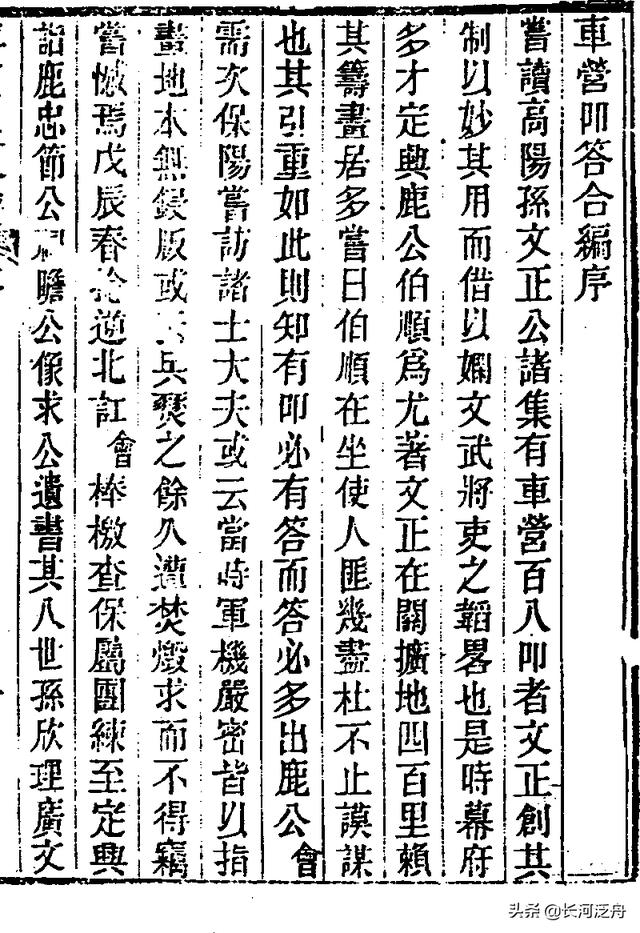 車營叩答合編序
嘗讀高陽孫文正公諸集有車營百八叩者文正創其
制以妙其用而借以嫻文武將吏之韜畧也是時幕府
多才定興鹿公伯順爲尤著文正在關擴地四百里賴
其籌畫居多嘗曰伯順在坐使人匪幾盡杜不止謨謀
也其引重如此則知有叩必有答而答必多出鹿公會
需次保陽嘗訪諸士大夫或云當時軍機嚴密皆以指
畫地本無鋟版或云兵燹之餘久遭焚燬求而不得竊
嘗憾焉戊辰春逆北訌會棒檄查保屬團練至定興
詣鹿忠節公祠瞻公像求公遺書其八世孫欣理廣文
头条 @长河泛舟